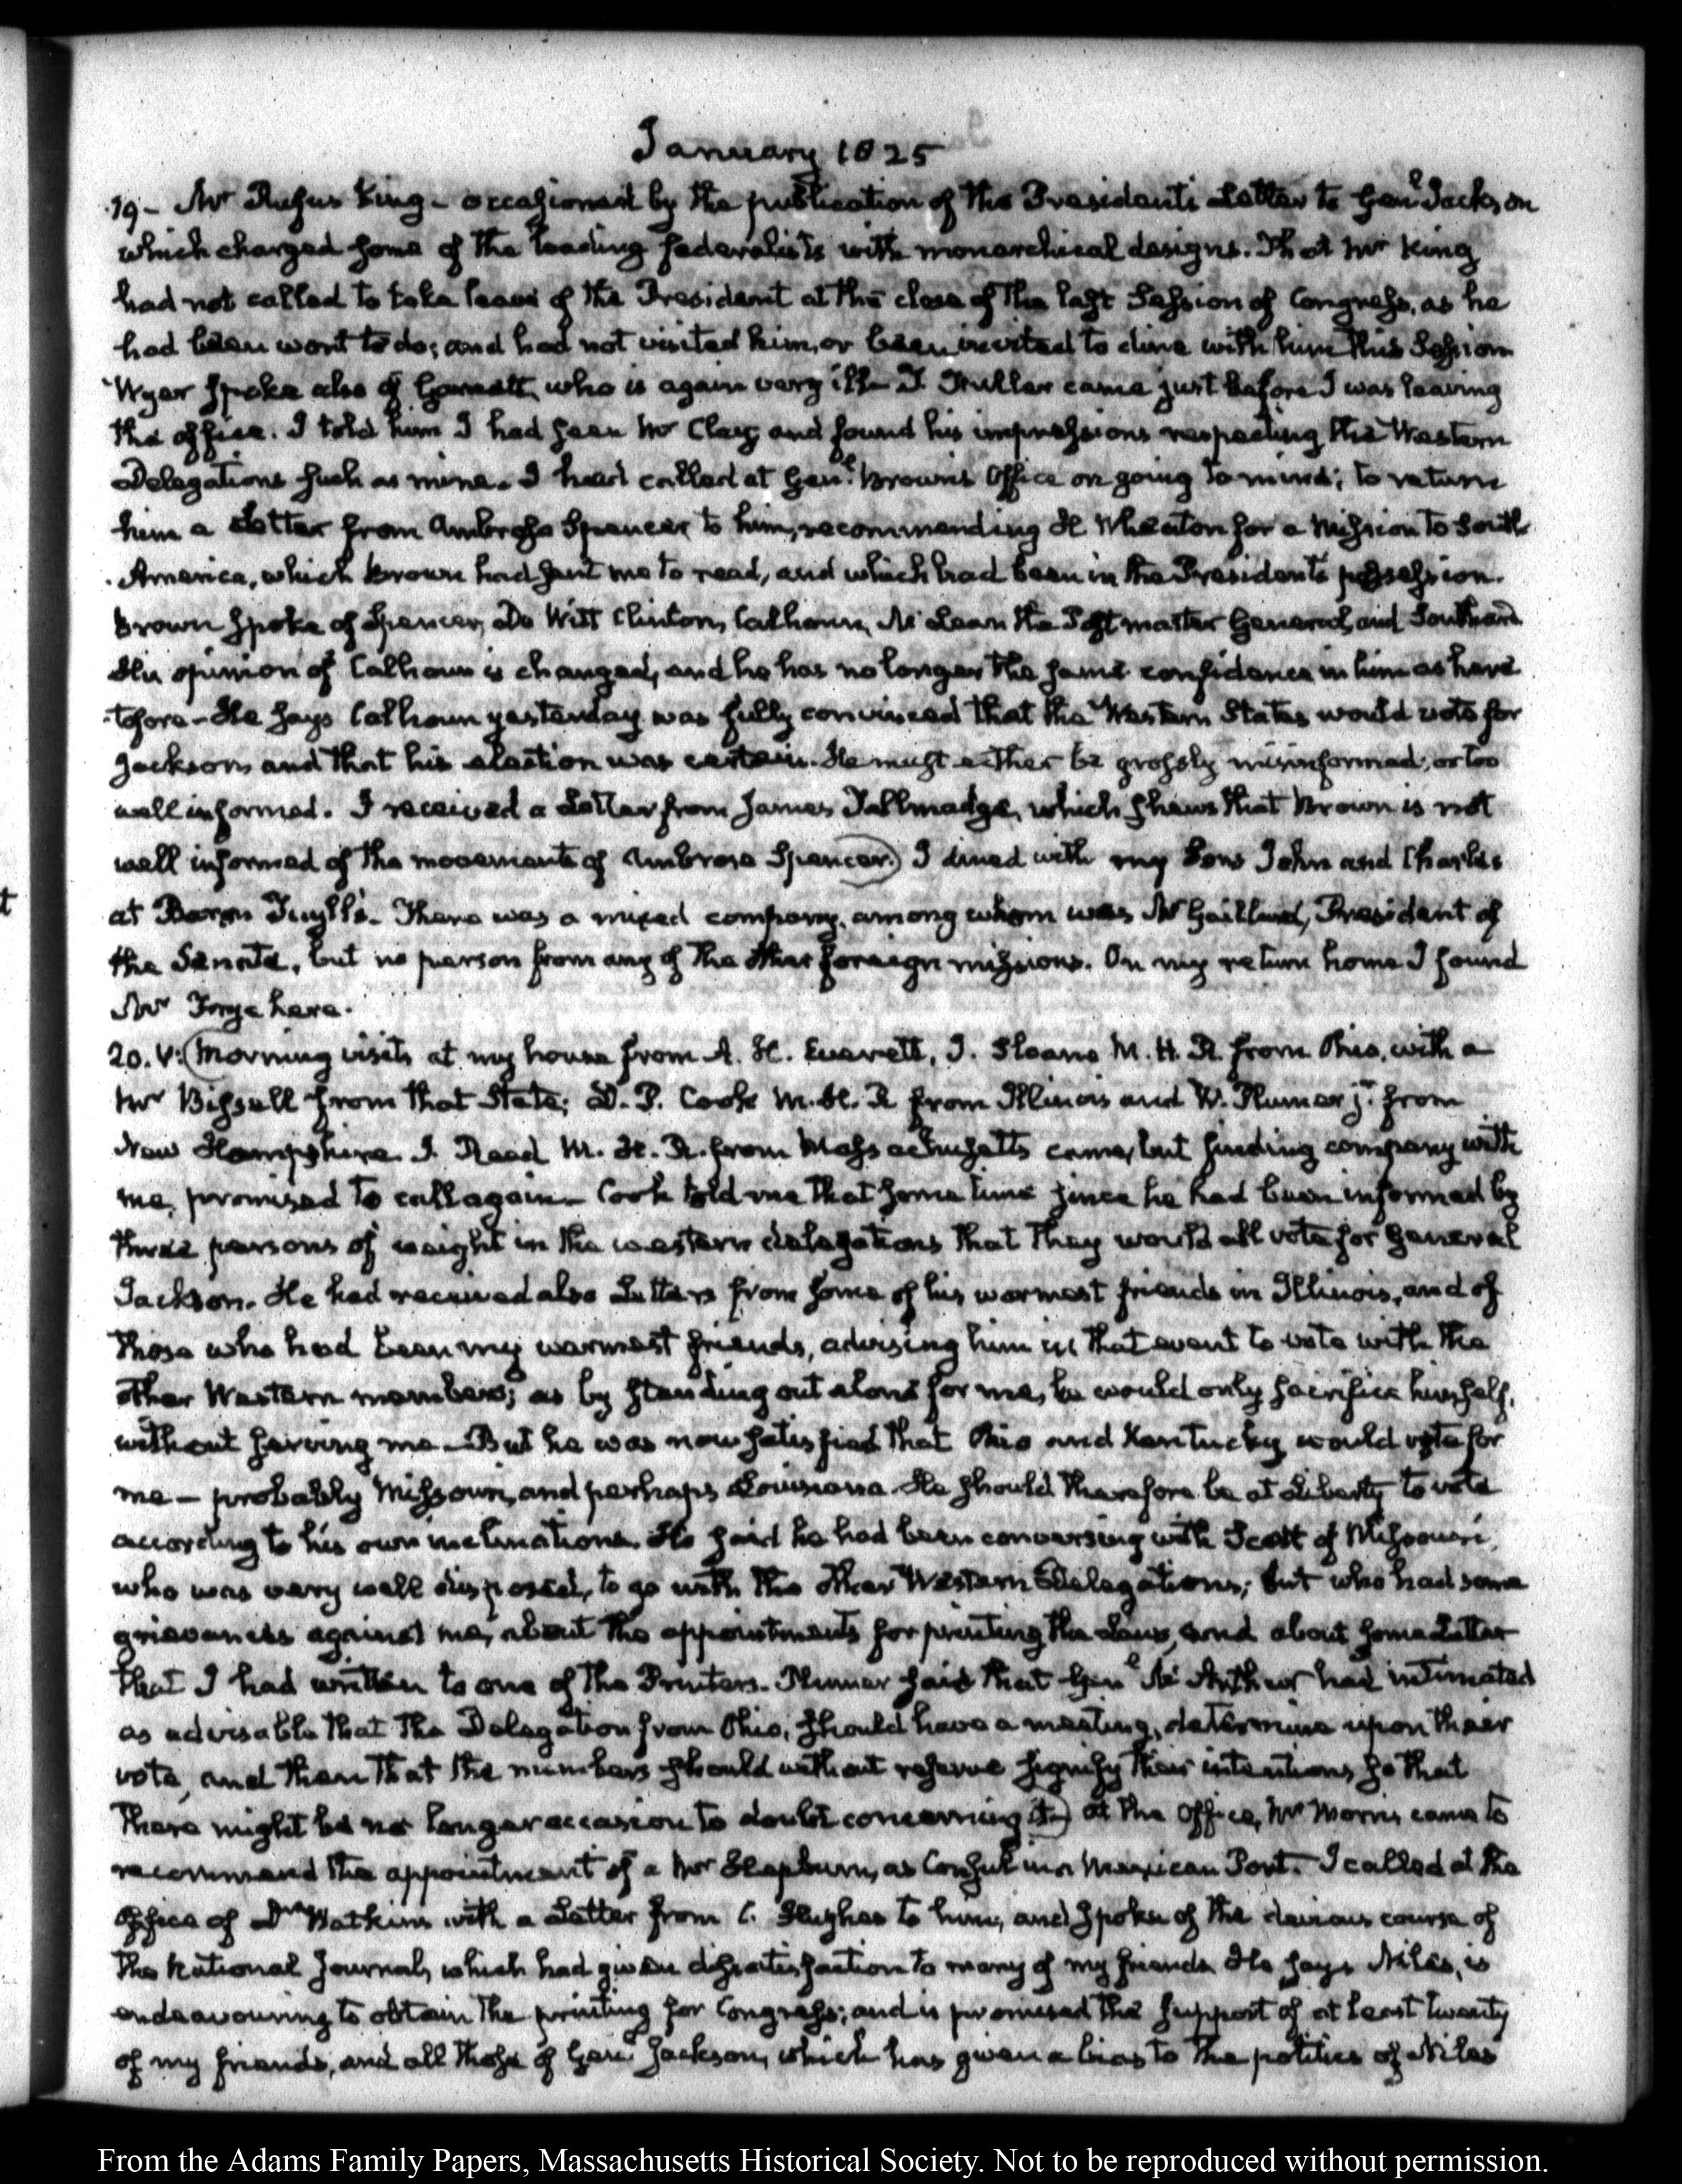 January 1825
19 - Mr Rufus King - occasioned by the publication of the Presidents Letter to Genl. Jackson
which charged some of the leading federalists with monarchical designs. That Mr King
had not called to take leave of the President at the close of the last Session of Congress, as he
had been wont to do; and had not visited him, or been invited to dine with him this Session
Wyer spoke also of Garnett, who is again very ill - T. Fuller came just before I was leaving
the office. I told him I had seen Mr Clay, and found his impressions respecting the Western
Delegations such as mine. I had called at Genl. Brown's Office on going to mine; to return
him a Letter from Ambrose Spencer to him, recommending H Wheaton for a Mission to South
America, which Brown had sent me to read, and which had been in the President's possession.
Brown spoke of Spencer, De Witt Clinton, Calhoun, McLean the Postmaster General, and Southard
His opinion of Calhoun is changed, and he has no longer the same confidence in him as here
tofore - He says Calhoun yesterday was fully convinced that the Western States would vote for
Jackson, and that his election was certain. He must either be grossly misinformed, or too
well informed. I received a Letter from James Tallmadge, which shews that Brown is not
well informed of the movements of Ambrose Spencer.) I dined with my Sons John and Charles
at Baron Tuyll's. There was a mixed company, among whom was Mr Gaillard, President of
the Senate, but no person from any of the other foreign missions. On my return home I found
Mr Frye here.
20. V: (Morning visits at my house from A. H. Everett, J. Sloane M. H. R. from Ohio, with a
Mr Bissell from that State; D. P. Cook M. H. R from Illinois and W. Plumer jr. from
New Hampshire. J. Reed M. H. R. from Massachusetts came, but finding company with
me, promised to call again - Cook told me that some time since he had been informed by
three persons of weight in the western delegations that they would all vote for General
Jackson. He had received also Letters from some of his warmest friends in Illinois, and of
those who had been my warmest friends, advising him in that event to vote with the
other Western members; as by standing out alone for me, he would only sacrifice himself,
without serving me - But he was now satisfied that Ohio and Kentucky would vote for
me - probably Missouri, and perhaps Louisiana. He should therefore be at Liberty to vote
according to his own inclinations. He said he had been conversing with Scott of Missouri,
who was very well disposed, to go with the other Western Delegations; but who had some
grievances against me, about the appointments for printing the Laws, and about some Letter
that I had written to one of the Printers. Plumer said that Genl McArthur had intimated
as advisable that the Delegation from Ohio, should have a meeting, determine upon their
vote, and then that the members should without reserve signify their intentions so that
there might be no longer occasion to doubt concerning it -) at the Office, Mr Morris came to
recommend the appointment of a Mr Hepburn, as Consul in a Mexican Port. I called at the
Office of Dr. Watkins with a Letter from C. Hughes to him, and spoke of the devious course of
the National Journal, which had given dissatisfaction to many of my friends. He says Niles, is
endeavouring to obtain the printing for Congress; and is promised the support of at least twenty
of my friends, and all those of Genl. Jackson, which has given a bias to the politics of Niles
From the Adams Family Papers, Massachusetts Historical Society. Not to be reproduced without permission.